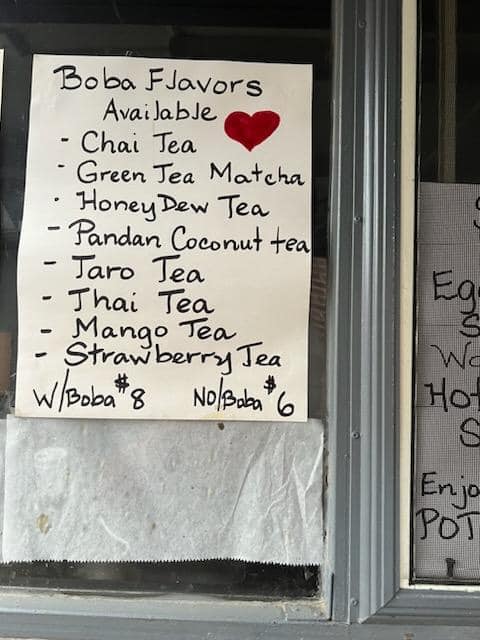 Boba Flavors
Available
- Chai Tea
- Green Tea Matcha
- HoneyDew Tea
- Pandan Coconut tea
- Taro Tea
- Thai Tea
- Mango Tea
- Strawberry Tea
W/Boba $8 NO/Boba $6